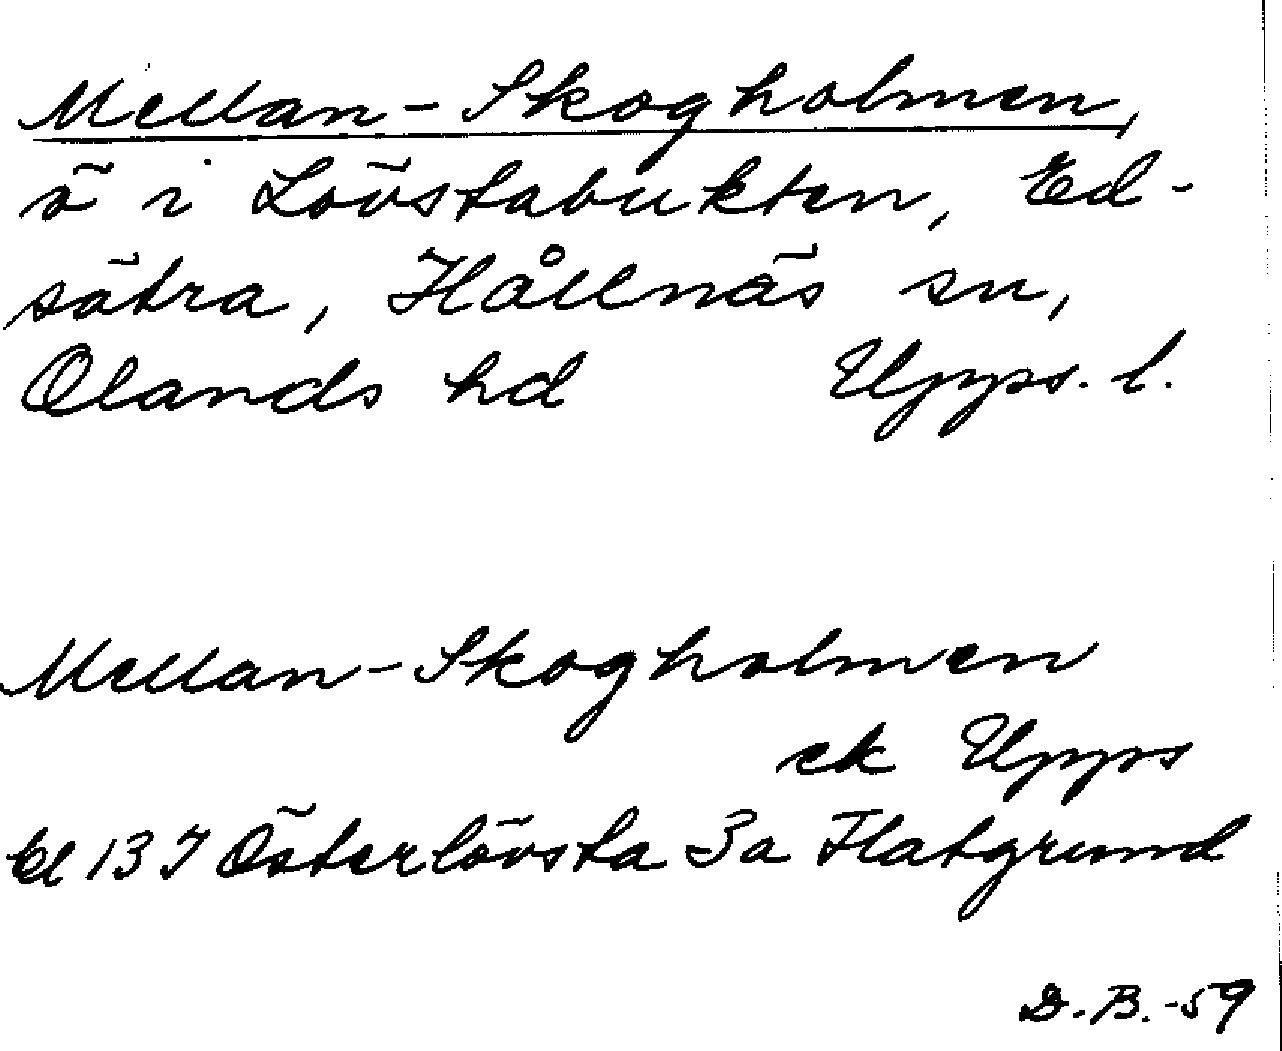 Mellan-Skogholmen,
ö i Lövstabukten, Ed-
sätra, Hållnäs sn,
Olands hd Upps. l.
Mellan-Skogholmen
ek Upps
bl 13 I Österlövsta 3a Flatgrund
D.B.-59